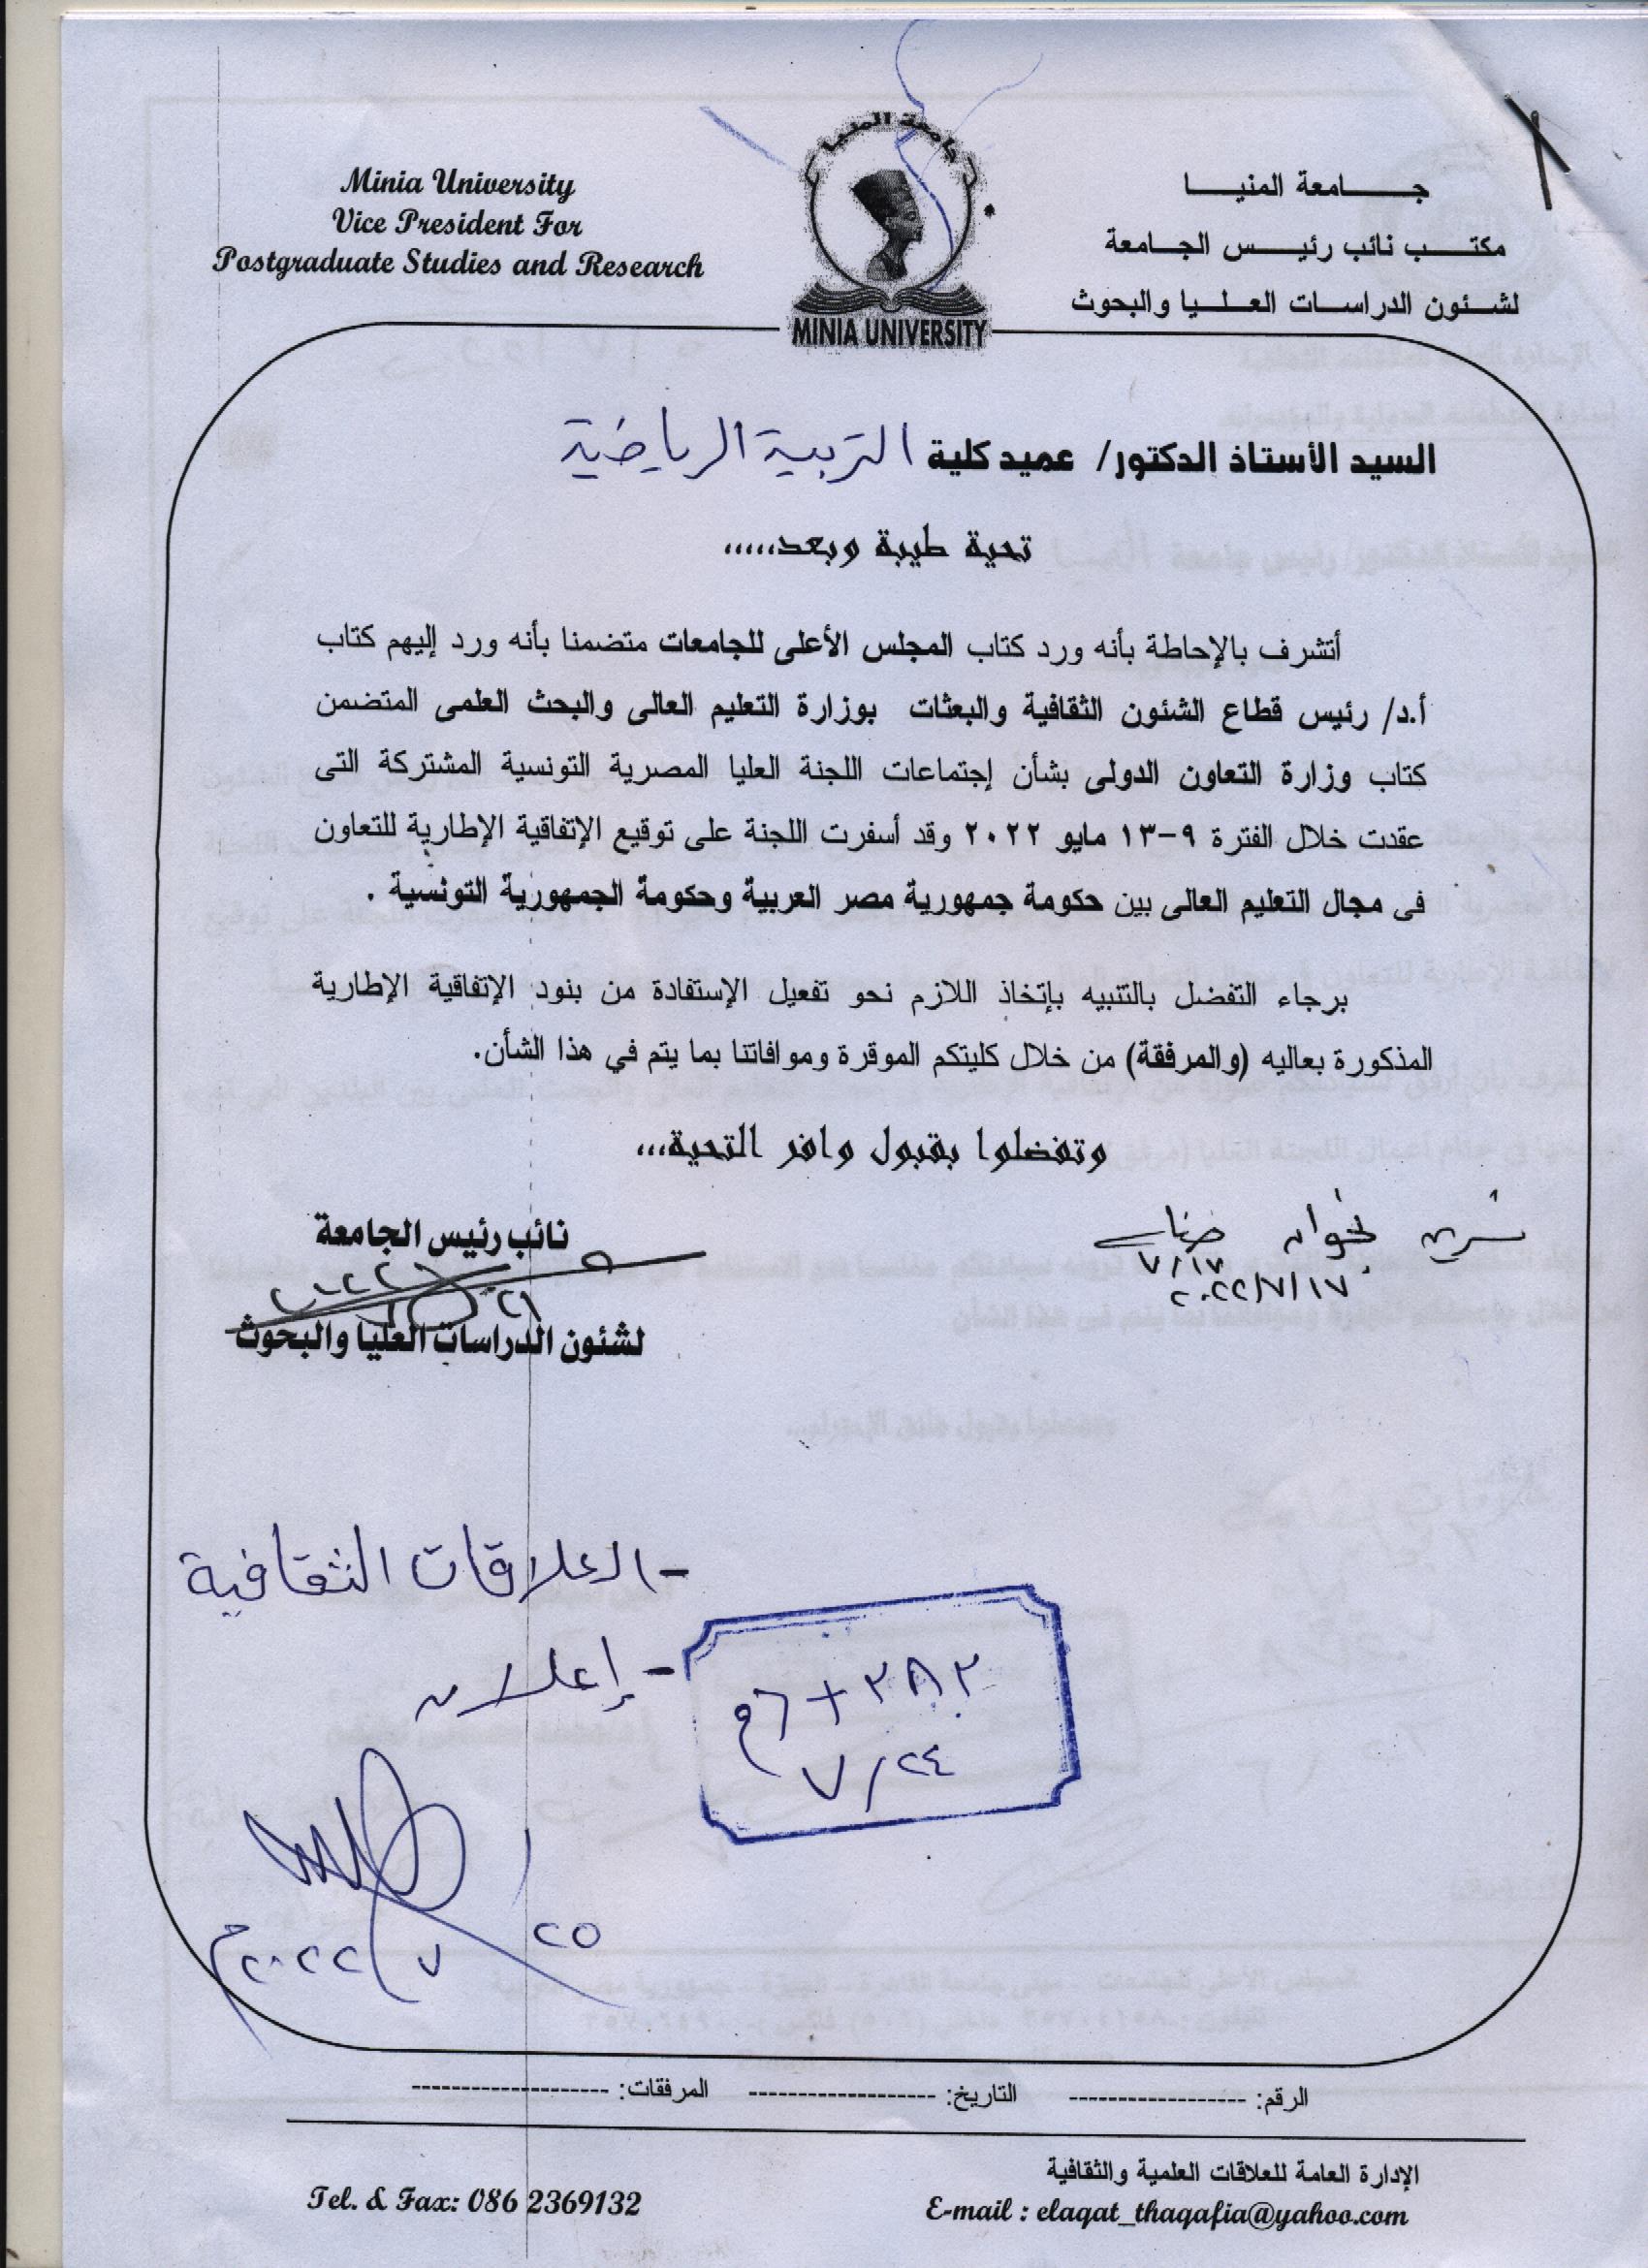 Minia University
Vice President For
Postgraduate Studies and Research
جامعة المنيا
MINIA UNIVERSITY
جـــــامعة المنيـــــا
مكتـــب نائب رئيـــس الجـامعة
لشـئون الدراسـات العـلـيـا والبحوث
السيد الأستاذ الدكتور/ عميد كلية التربية الرياضية
تحية طيبة وبعد.....
أتشرف بالإحاطة بأنه ورد كتاب المجلس الأعلى للجامعات متضمنا بأنه ورد إليهم كتاب
أ.د/ رئيس قطاع الشئون الثقافية والبعثات بوزارة التعليم العالى والبحث العلمى المتضمن
كتاب وزارة التعاون الدولى بشأن إجتماعات اللجنة العليا المصرية التونسية المشتركة التى
عقدت خلال الفترة ٩-١٣ مايو ٢٠٢٢ وقد أسفرت اللجنة على توقيع الإتفاقية الإطارية للتعاون
فى مجال التعليم العالى بين حكومة جمهورية مصر العربية وحكومة الجمهورية التونسية .
برجاء التفضل بالتنبيه بإتخاذ اللازم نحو تفعيل الإستفادة من بنود الإتفاقية الإطارية
المذكورة بعاليه (والمرفقة) من خلال كليتكم الموقرة وموافاتنا بما يتم في هذا الشأن.
وتفضلوا بقبول وافر التحية...
نائب رئيس الجامعة
لشئون الدراسات العليا والبحوث
٧/١٧
٢٠٢٢/٧/١٧
- العلاقات الثقافية
- إعلان
٣٨٢ + ٦م
٧/٢٤
٢٥ / ٧ / ٢٠٢٢م
الرقم: ------------------ التاريخ: ------------------- المرفقات: --------------------
الإدارة العامة للعلاقات العلمية والثقافية
Tel. & Fax: 086 2369132
E-mail : elaqat_thaqafia@yahoo.com